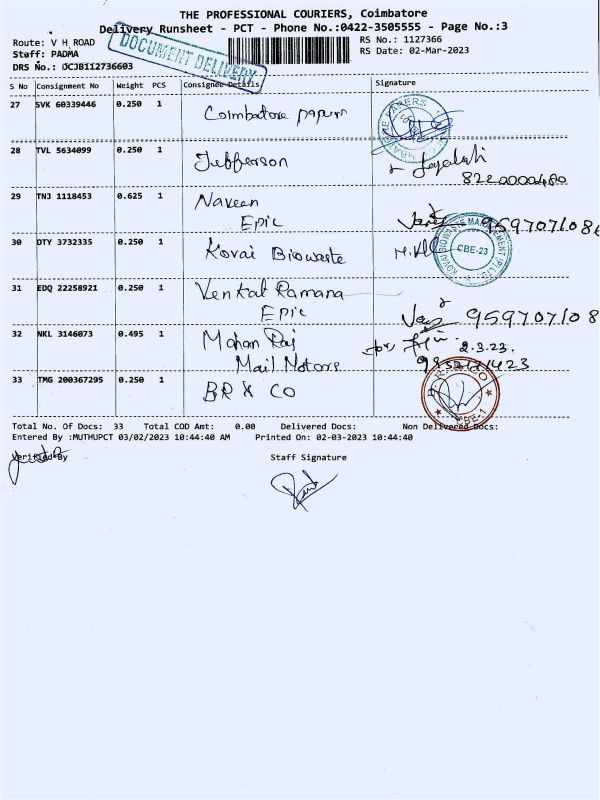 THE PROFESSIONAL COURIERS, Coimbatore
Delivery Runsheet - PCT - Phone No.:0422-3505555 - Page No.:3
Route: V H ROAD
RS No.: 1127366
Staff: PADMA
RS Date: 02-Mar-2023
DRS No.: DCJB112736603
DOCUMENT DELIVERY
S No Consignment No Weight PCS Consignee Details Signature
27 SVK 60339446 0.250 1 Coimbatore papers
28 TVL 5634099 0.250 1 Jefferson
8220000480
29 TNJ 1118453 0.625 1 Naveen
Epic 9597071086
30 DTY 3732335 0.250 1 Kovai Biowaste
KOVAI BIOWASTE MANAGEMENT (P) LTD
CBE-23
31 EDQ 22258921 0.250 1 Venkat Ramana
Epic 959707108
32 NKL 3146073 0.495 1 Mohan Raj
Mail Motors
2.3.23.
33 TMG 200367295 0.250 1 BR & CO
CBE-1
Total No. Of Docs: 33 Total COD Amt: 0.00 Delivered Docs: Non Delivered Docs:
Entered By :MUTHUPCT 03/02/2023 10:44:40 AM Printed On: 02-03-2023 10:44:40
Verified By Staff Signature